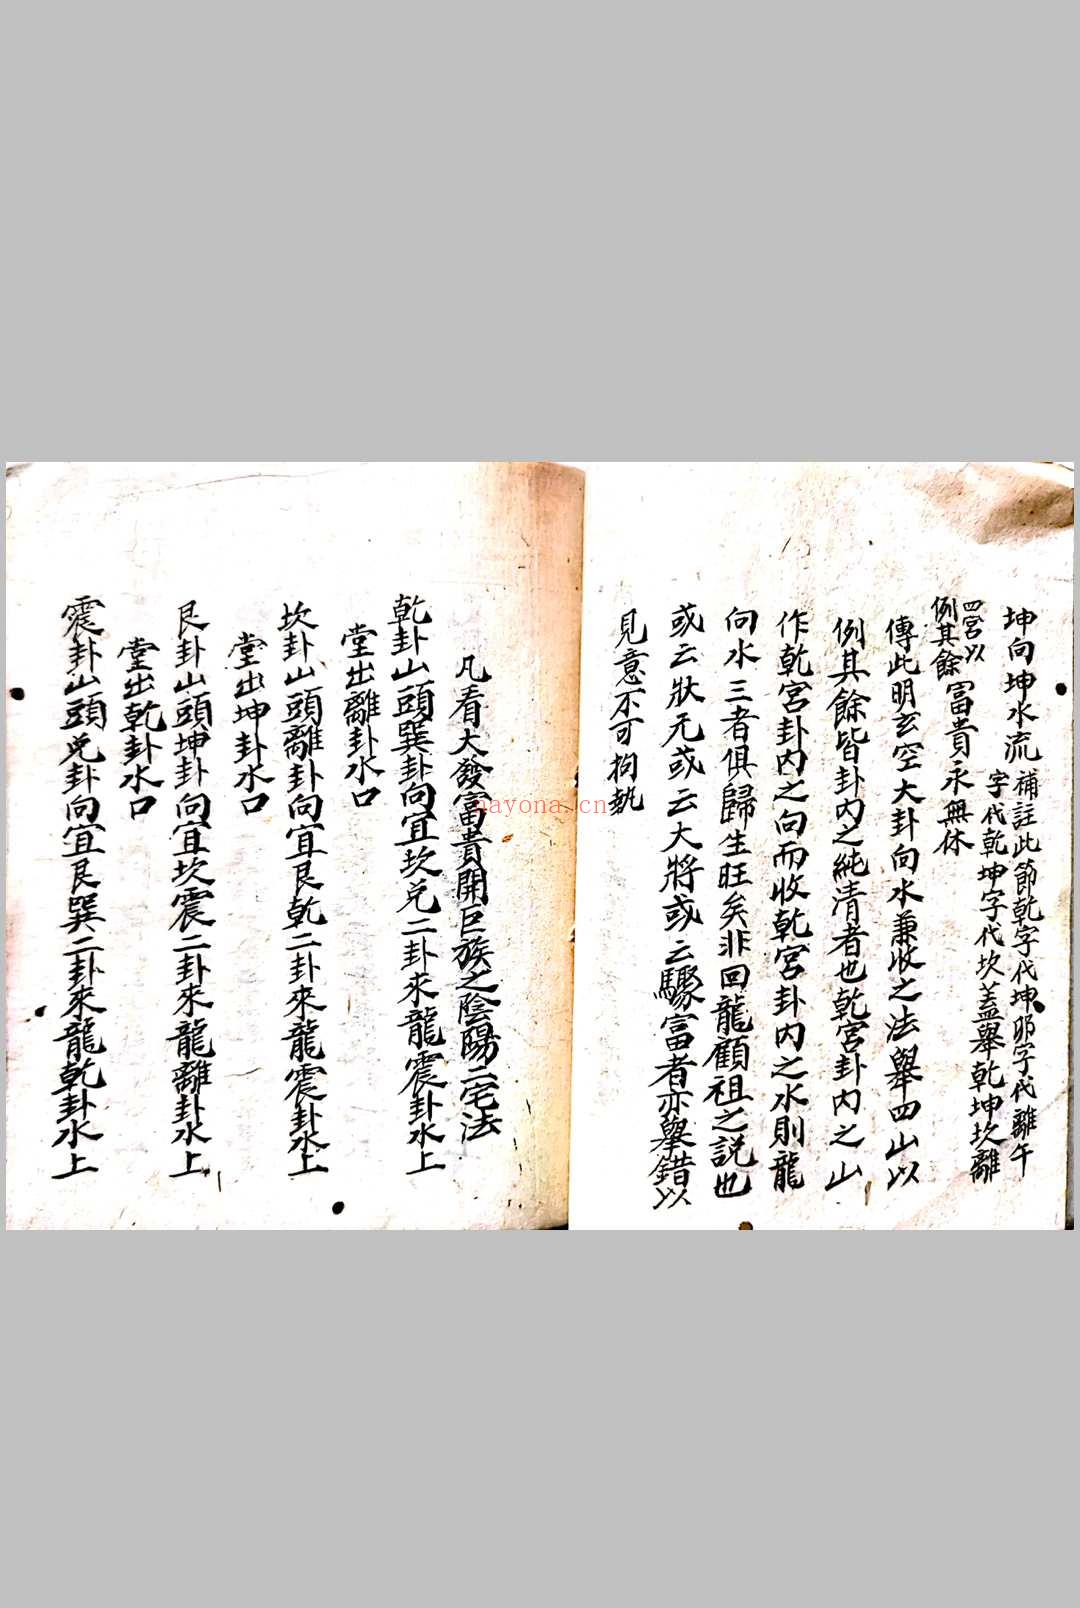 坤向坤水流
補註此節乾字代坤卯字代離午
字代乾坤字代坎蓋舉乾坤坎離
四宮以
例其餘
富貴永無休
傳此明玄空大卦向水兼收之法舉四山以
例其餘皆卦內之純清者也乾宮卦內之山
作乾宮卦內之向而收乾宮卦內之水則龍
向水三者俱歸生旺矣非回龍顧祖之説也
或云狀元或云大將或云驟富者亦舉錯以
見意不可拘執
凡看大發富貴開巨族之陰陽二宅法
乾卦山頭巽卦向宜坎兌二卦來龍震卦水上
堂出離卦水口
坎卦山頭離卦向宜艮乾二卦來龍震卦水上
堂出坤卦水口
艮卦山頭坤卦向宜坎震二卦來龍離卦水上
堂出乾卦水口
震卦山頭兌卦向宜艮巽二卦來龍乾卦水上
nayona.cn